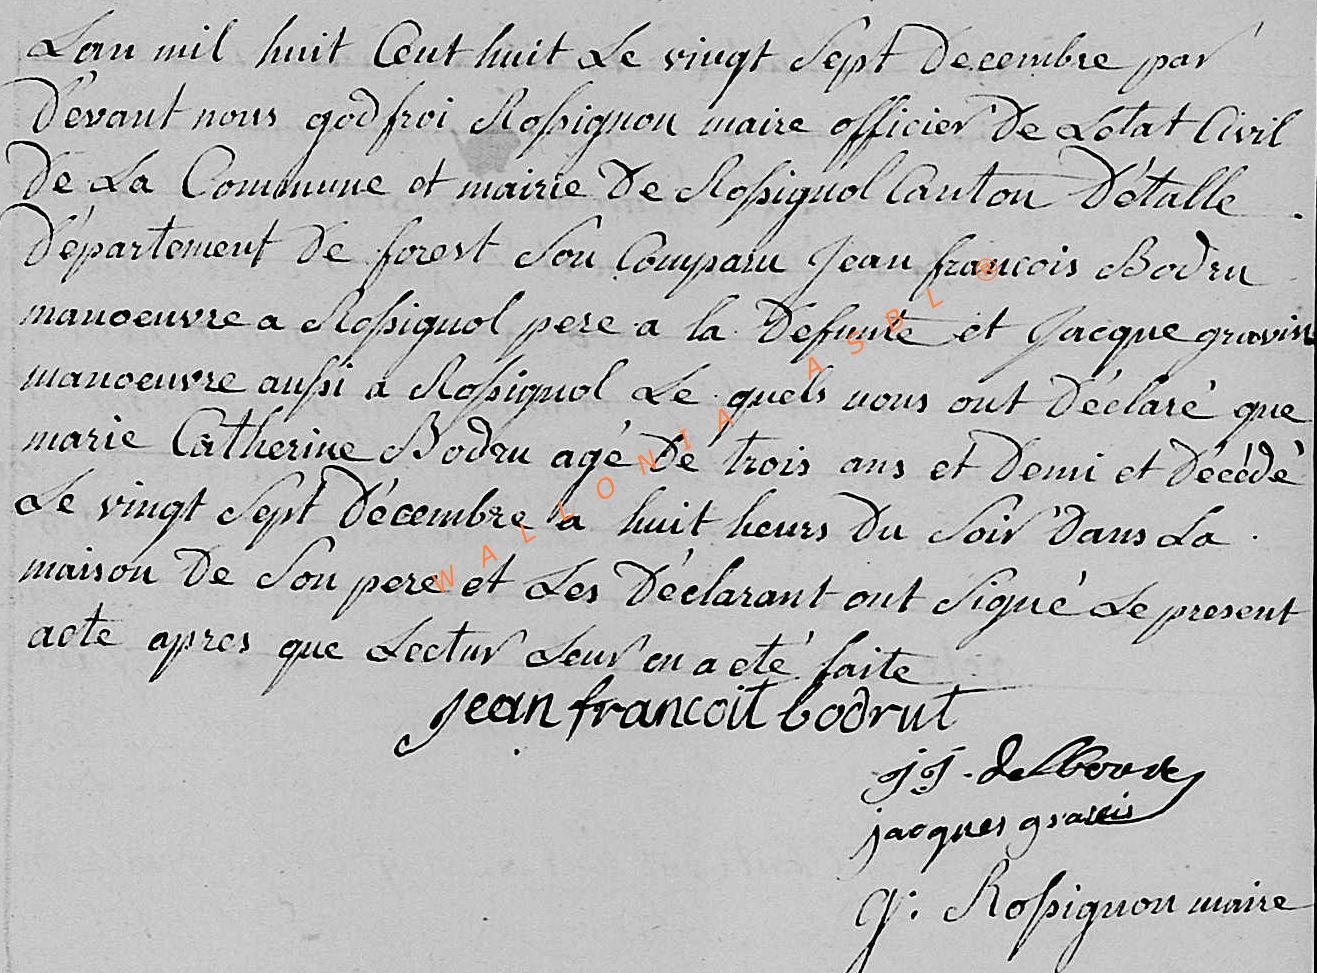 Lan mil huit Cent huit Le vingt Sept Decembre par
Devant nous godfroi Rossignon maire officier De Letat Civil
De La Commune et mairie De Rossignol Canton Détalle
Département De forest Son Comparu Jean francois Bodru
manoeuvre a Rossignol pere a la Defunte et Jacque gravis
manoeuvre aussi a Rossignol Le quels nous ont Déclaré que
marie Catherine Bodru agé De trois ans et Demi et Décédé
Le vingt Sept Décembre a huit heurs Du Soir Dans La
maison De Son pere et Les Déclarant ont Signé Le present
acte apres que Lectur Leur en a eté faite
jean francoit bodrut
jj. de
jacques gravis
g: Rossignon maire
WALLONIA ASBL ®